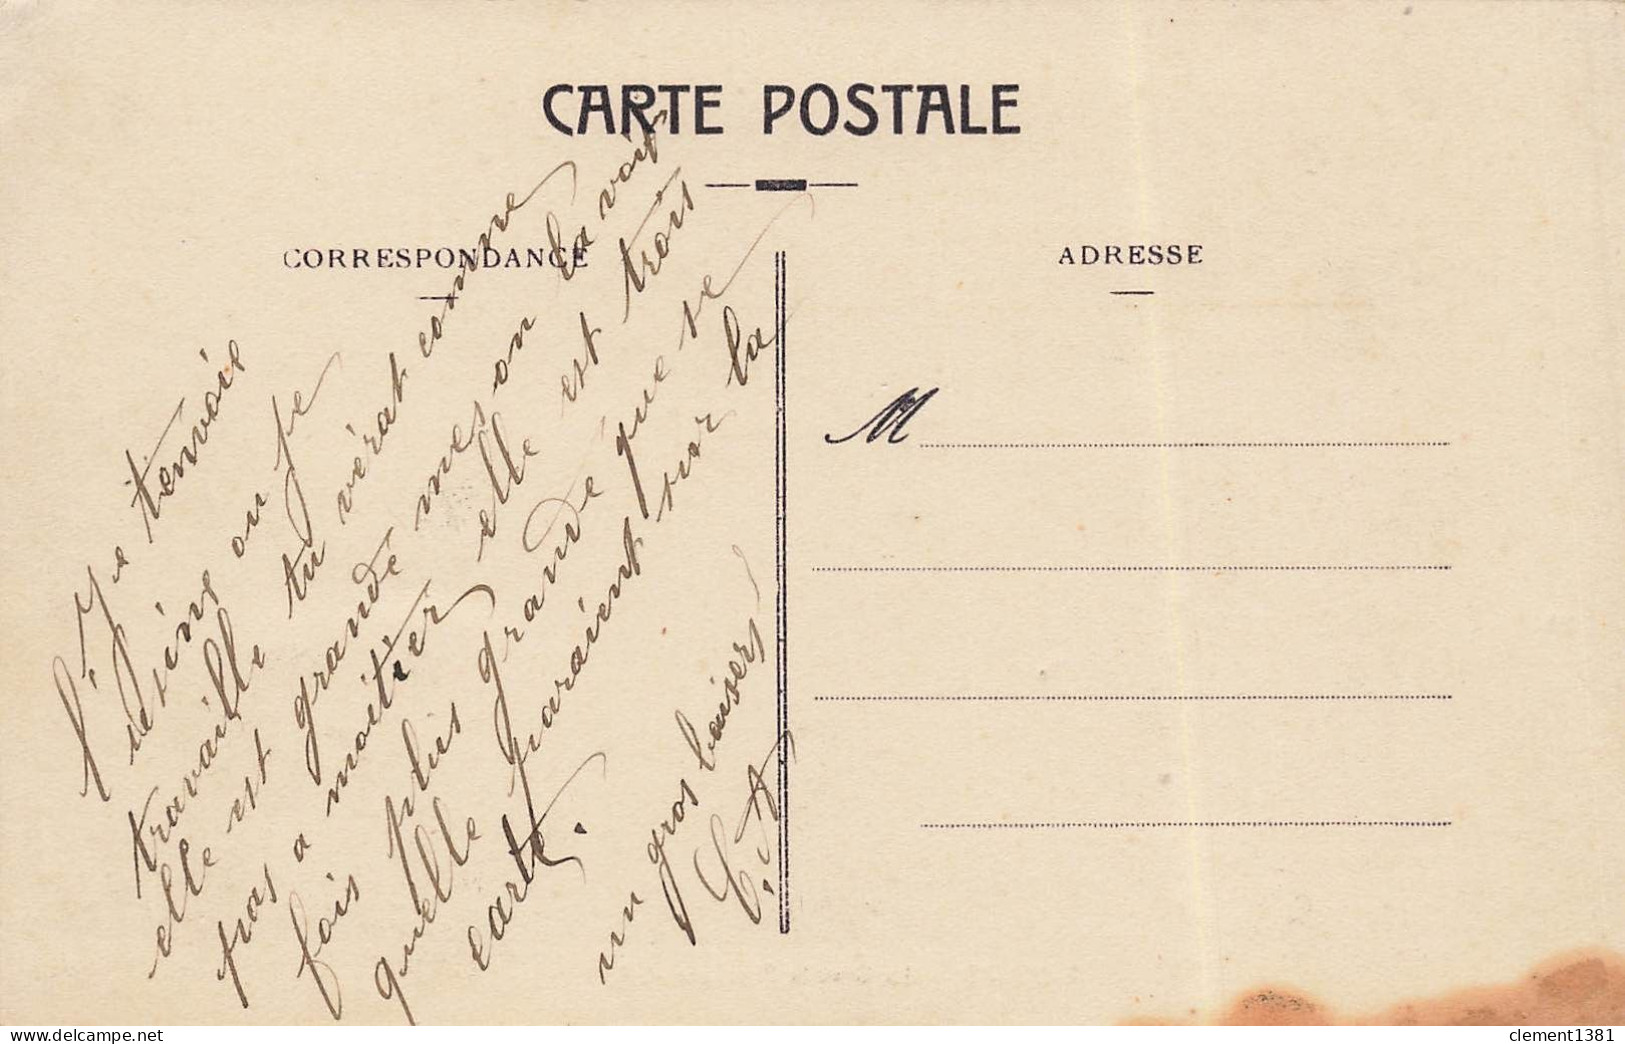 CARTE POSTALE
CORRESPONDANCE
ADRESSE
Je tenvoie
l'usine ou je
travaille tu vérat comme
elle est grandé mes on la voit
pas a moitier elle est trois
fois plus grande que se
quelle paraient sur la
carte.
un gros baisers
M
clement1381